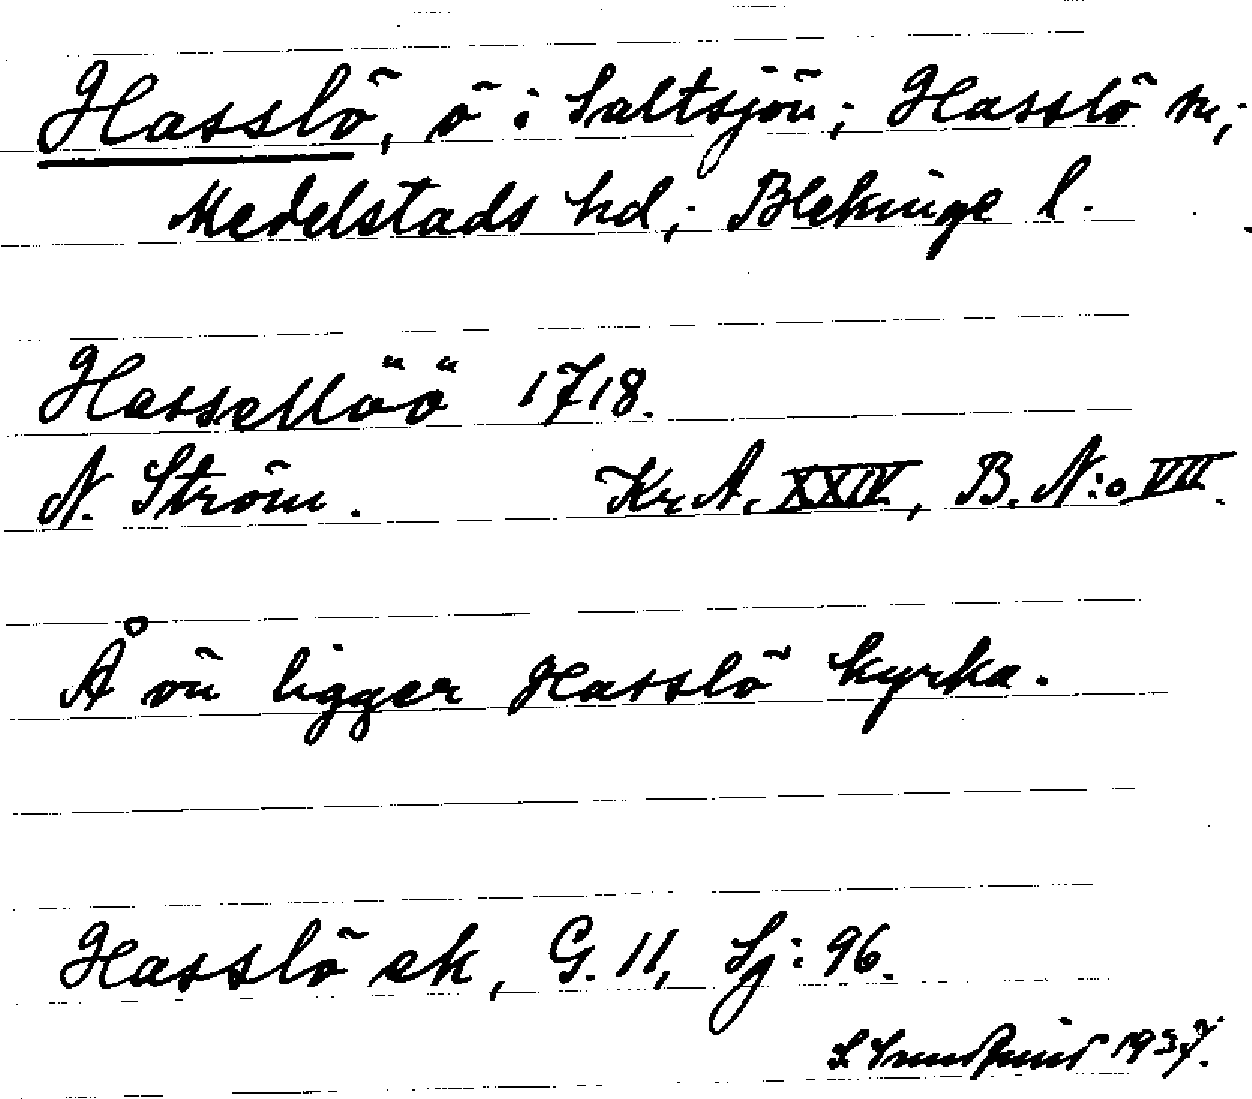 Hasslö, ö i Saltsjön; Hasslö sn;
Medelstads hd; Blekinge l.
Hassellöö 1718.
N. Ström. Kr. A. XXIV, B. N:o VII.
Å ön ligger Hasslö kyrka.
Hasslö ek, G. 11, Sj: 96.
1937.